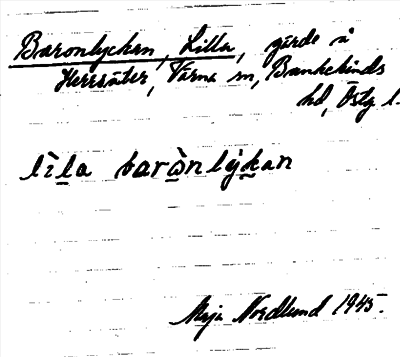 Baronlyckan, Lilla, gärde å
Herrsäter, Värna sn, Bankekinds
hd, Östg l.
lìla barònlýkan
Maja Nordlund 1945.